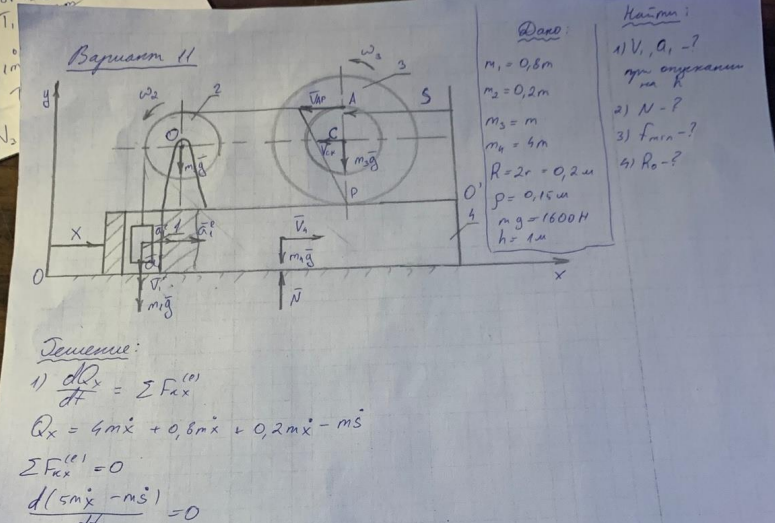 Вариант 11
Дано:
m₁ = 0,8m
m₂ = 0,2m
m₃ = m
m₄ = 4m
R = 2r = 0,2 м
ρ = 0,15 м
mg = 1600 Н
h = 1 м
Найти:
1) V₁, a₁ - ?
при опускании
на h
2) N - ?
3) fmin - ?
4) R₀ - ?
y
ω₂
2
O
m₂g
ω₃
3
V_AP
A
S
C
m₃g
P
O'
4
X
1
a₁ᵉ
V₁
m₁g
V₄
m₄g
N
O
x
Решение:
1) dQx/dt = ΣFκx⁽ᵉ⁾
Qx = 4mẋ + 0,8mẋ + 0,2mẋ - mṡ
ΣFκx⁽ᵉ⁾ = 0
d(5mẋ - mṡ)
= 0